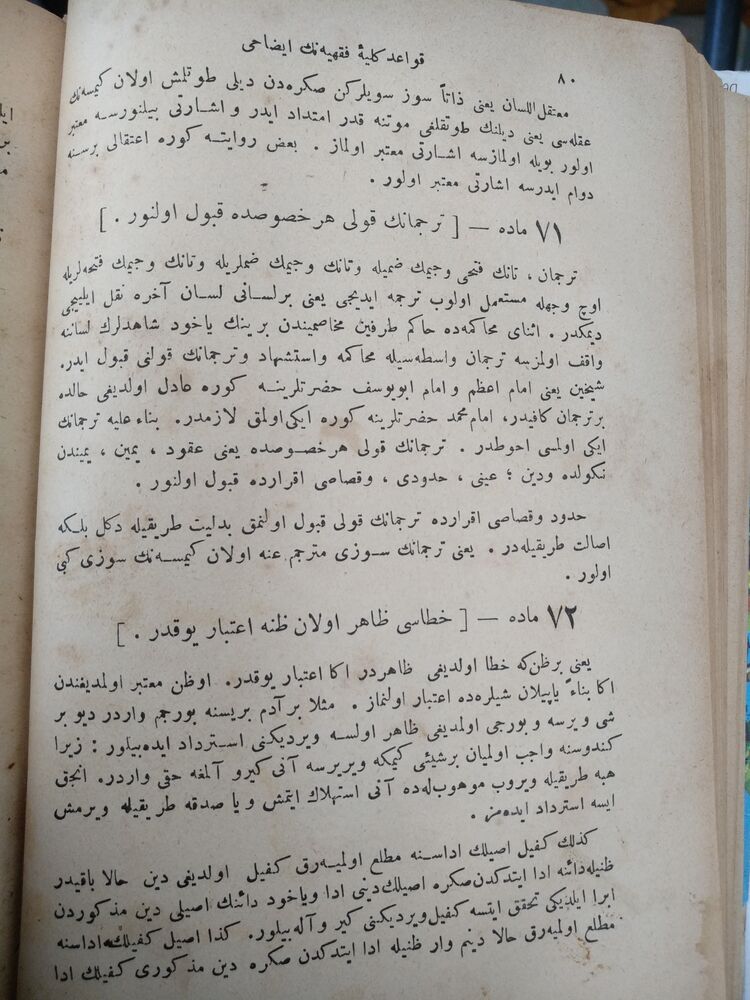 ٨٠
قواعد كليهٔ فقهيه‌نك ايضاحى
معتقل اللسان يعنى ذاتاً سوز سويلركن صكره‌دن ديلى طوتلمش اولان كيمسه‌نك
عقله‌سى يعنى ديلنك طوتقلغى موتنه قدر امتداد ايدر و اشارتى بيلنورسه معتبر
اولور بويله اولمازسه اشارتى معتبر اولماز . بعض روايته كوره اعتقالى برسنه
دوام ايدرسه اشارتى معتبر اولور .
٧١ ماده — [ ترجمانك قولى هر خصوصده قبول اولنور . ]
ترجمان ، تانك فتحى وجيمك ضميله وتانك وجيمك ضملريله وتانك وجيمك فتحه‌لريله
اوچ وجهله مستعمل اولوب ترجمه ايديجى يعنى برلسانى لسان آخره نقل ايلييجى
ديمكدر . اثناى محاكمه‌ده حاكم طرفين مخاصميندن برينك ياخود شاهدلرك لساننه
واقف اولمزسه ترجمان واسطه‌سيله محاكمه واستشهاد وترجمانك قولنى قبول ايدر.
شيخين يعنى امام اعظم و امام ابويوسف حضرتلرينه كوره عادل اولديغى حالده
برترجمان كافيدر، امام محمد حضرتلرينه كوره ايكى اولمق لازمدر. بناء عليه ترجمانك
ايكى اولمسى احوطدر . ترجمانك قولى هرخصوصده يعنى عقود ، يمين ، يميندن
نكولده ودين ؛ عينى ، حدودى ، وقصاصى اقرارده قبول اولنور .
حدود وقصاصى اقرارده ترجمانك قولى قبول اولنمق بدليت طريقيله دكل بلكه
اصالت طريقيله‌در . يعنى ترجمانك سوزى مترجم عنه اولان كيمسه‌نك سوزى كبى
اولور .
٧٢ ماده — [ خطاسى ظاهر اولان ظنه اعتبار يوقدر . ]
يعنى برظن‌كه خطا اولديغى ظاهردر اكا اعتبار يوقدر. اوظن معتبر اولمديغندن
اكا بناءً ياپيلان شيلره‌ده اعتبار اولنماز . مثلا برآدم بريسنه بورجم واردر ديو بر
شى ويرسه و بورجى اولمديغى ظاهر اولسه ويرديكنى استرداد ايده‌بيلور : زيرا
كندوسنه واجب اولميان برشيئى كيمكه ويريرسه آنى كيرو آلمغه حقى واردر. انجق
هبه طريقيله ويروب موهوب‌له‌ده آنى استهلاك ايتمش و يا صدقه طريقيله ويرمش
ايسه استرداد ايده‌مز .
كذلك كفيل اصيلك اداسنه مطلع اولميه‌رق كفيل اولديغى دين حالا باقيدر
ظنيله دائنه ادا ايتدكدن صكره اصيلك دينى ادا وياخود دائنك اصيلى دين مذكوردن
ابرا ايلديكى تحقق ايتسه كفيل ويرديكنى كير و آله‌بيلور. كذا اصيل كفيلك اداسنه
مطلع اولميه‌رق حالا دينم وار ظنيله ادا ايتدكدن صكره دين مذكورى كفيلك ادا